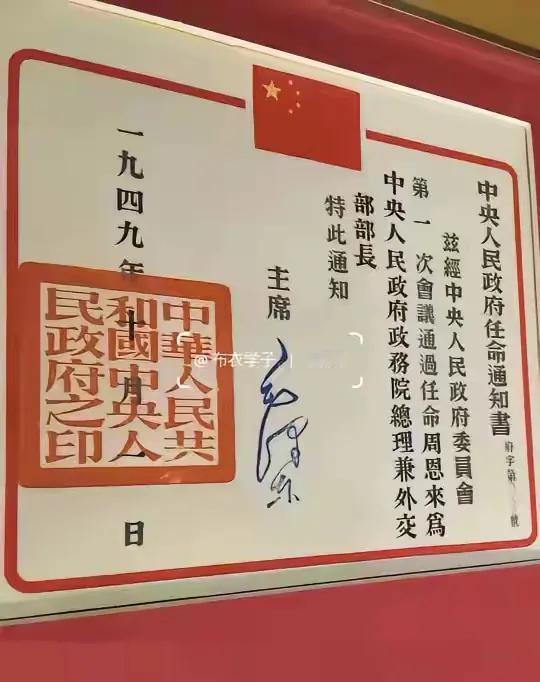 中央人民政府任命通知書
府字第 號
茲經中央人民政府委員會
第一次會議通過任命周恩來爲
中央人民政府政務院總理兼外交
部部長
特此通知
主席
毛澤東
一九四九年十月一日
中華人民共
和國中央人
民政府之印
@布衣学子